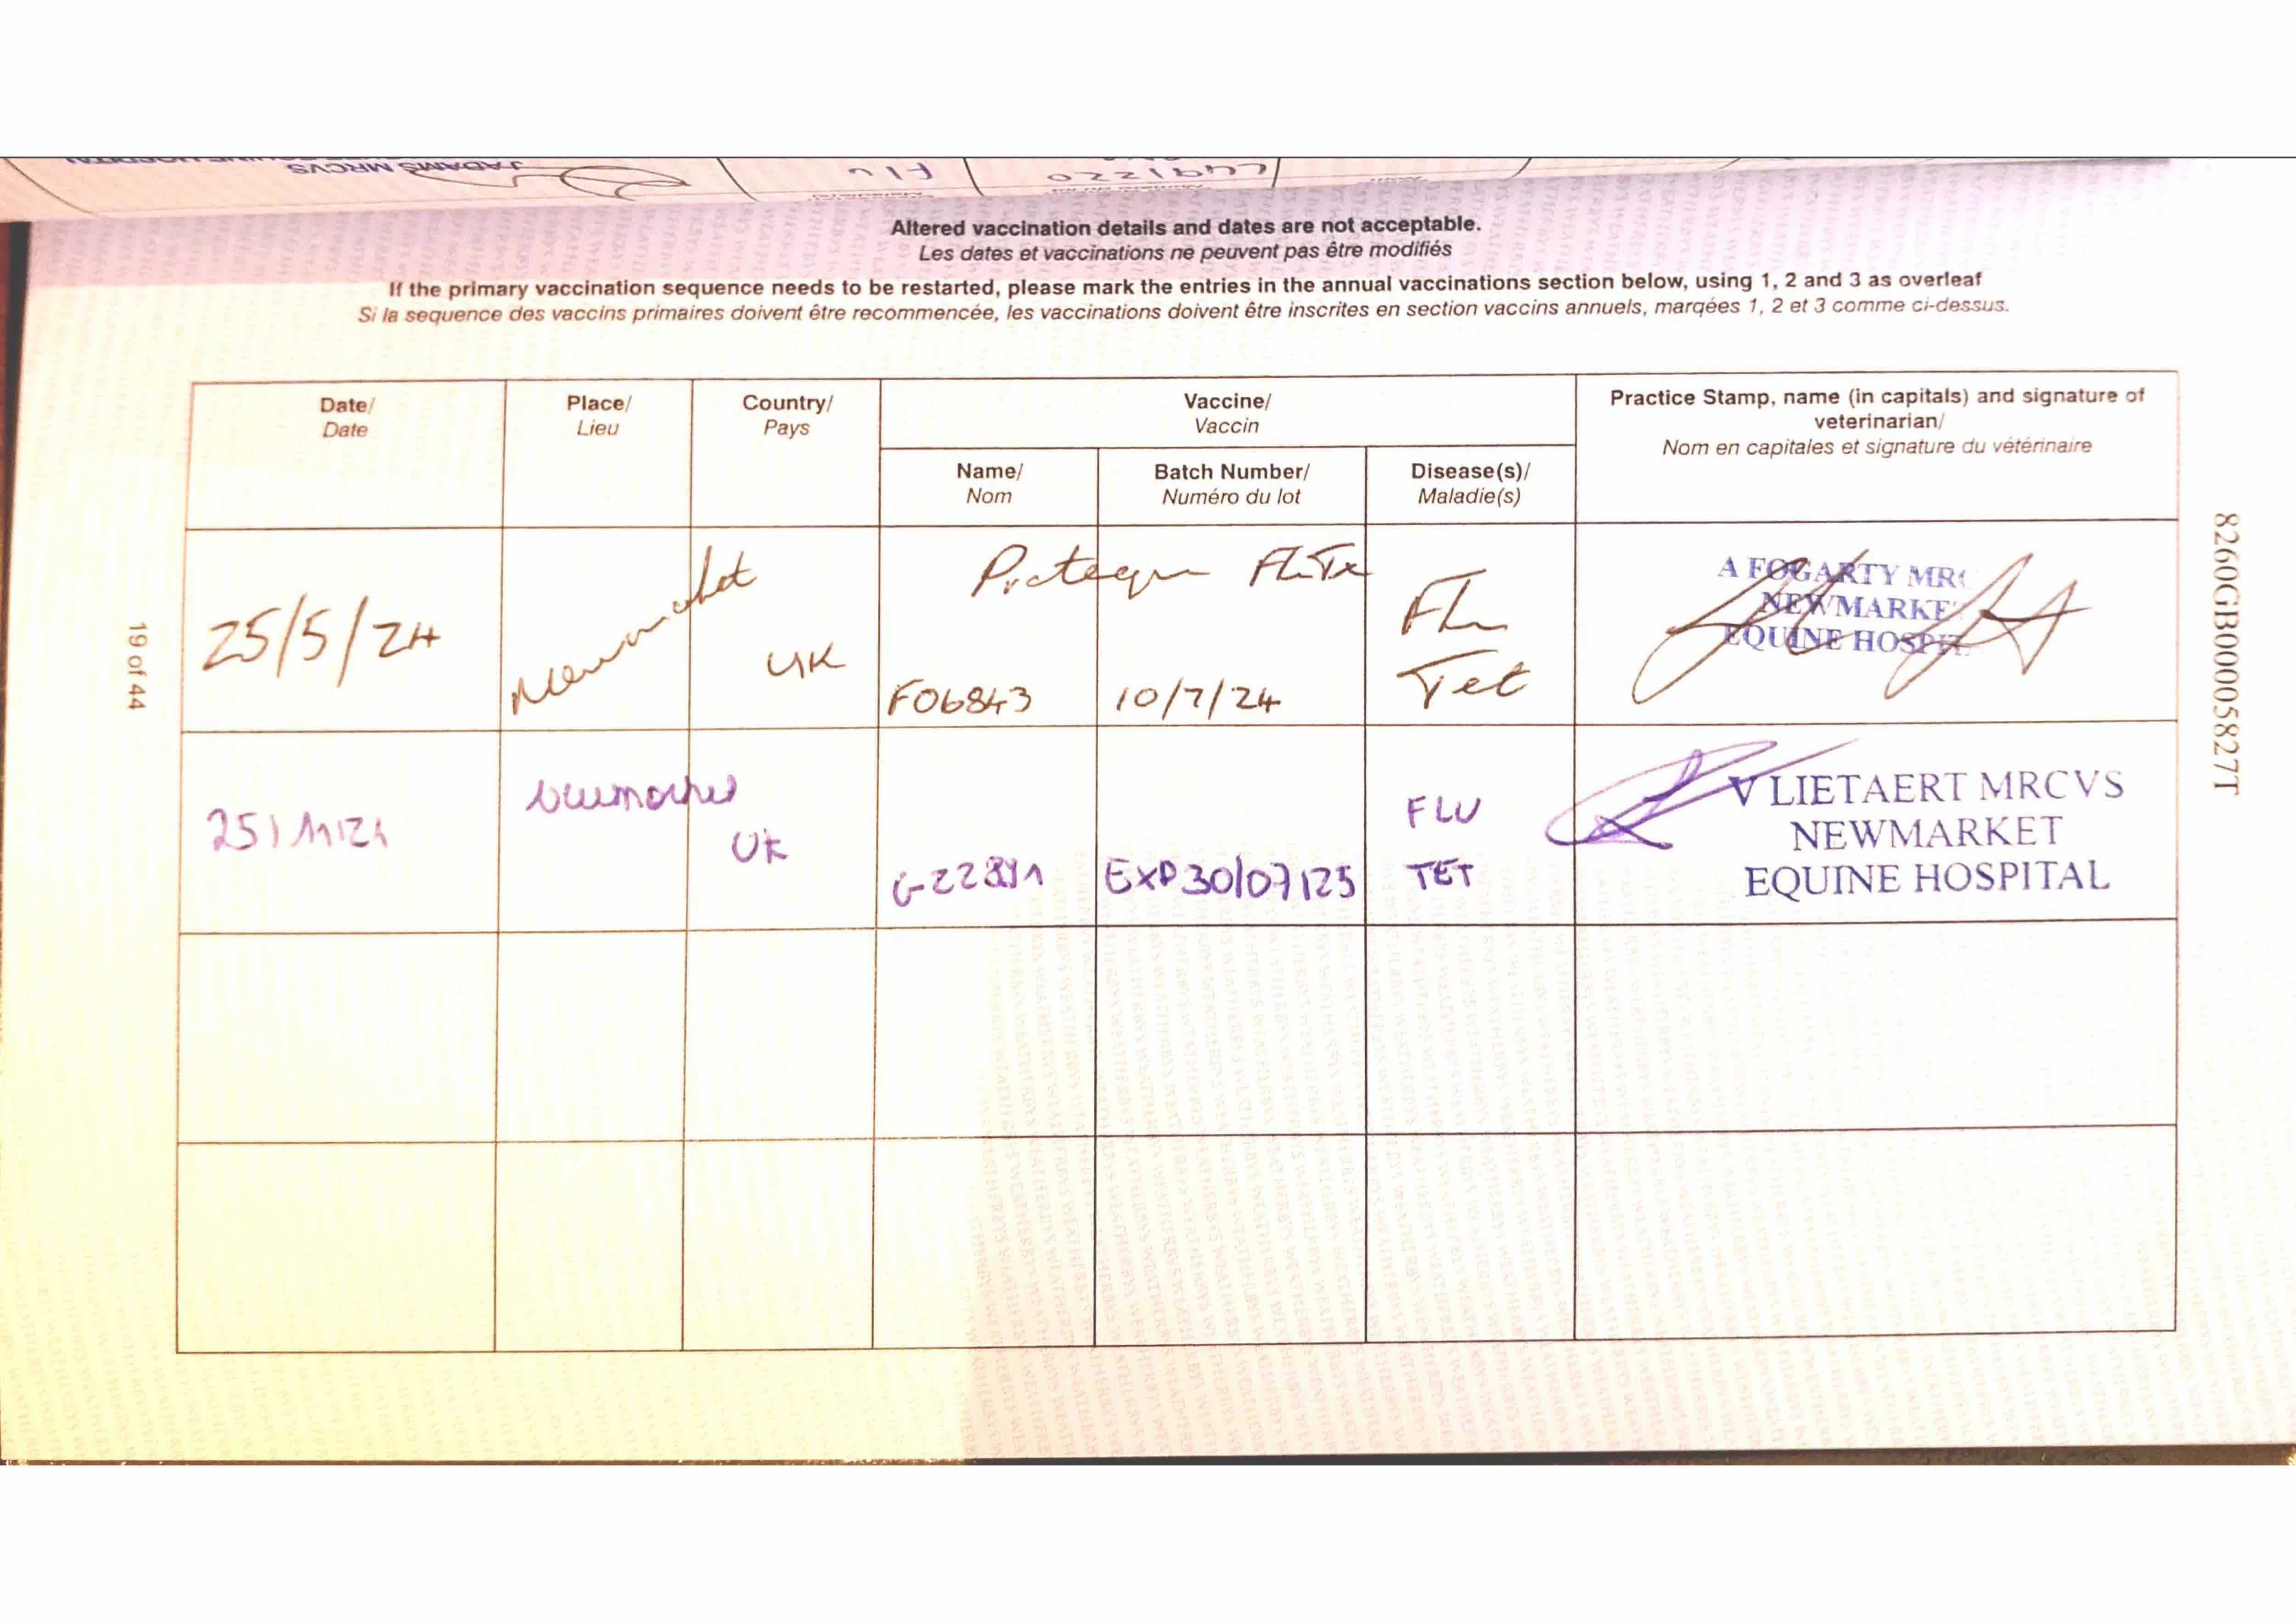 J ADAMS MRCVS
Flu
Altered vaccination details and dates are not acceptable.
Les dates et vaccinations ne peuvent pas être modifiés
If the primary vaccination sequence needs to be restarted, please mark the entries in the annual vaccinations section below, using 1, 2 and 3 as overleaf
Si la sequence des vaccins primaires doivent être recommencée, les vaccinations doivent être inscrites en section vaccins annuels, marqées 1, 2 et 3 comme ci-dessus.
Date/
Date
Place/
Lieu
Country/
Pays
Vaccine/
Vaccin
Name/
Nom
Batch Number/
Numéro du lot
Disease(s)/
Maladie(s)
Practice Stamp, name (in capitals) and signature of
veterinarian/
Nom en capitales et signature du vétérinaire
25/5/24
Newmarket
UK
Proteqflu Te
F06843
10/7/24
Flu
Tet
A FOGARTY MRC
NEWMARKE
EQUINE HOSPIT
25/11/24
Newmarket
UK
EXP 30/07/25
FLU
TET
V LIETAERT MRCVS
NEWMARKET
EQUINE HOSPITAL
19 of 44
8260GB00005827T